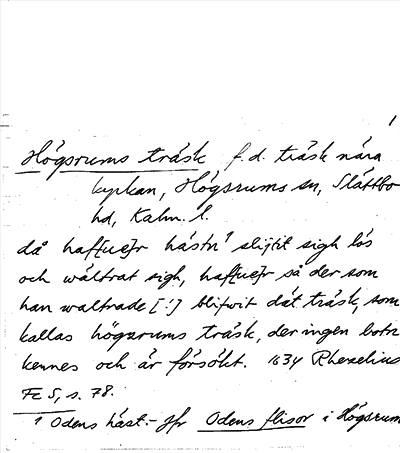 1
Högsrums träsk f.d. träsk nära
kyrkan, Högsrums sn, Slättbo
hd, Kalm. l.
då haf[ue]r hästn¹ slitit sigh lös
och wältrat sigh, haf[ue]r så der som
han waltrade [:] blifwit dät träsk, som
kallas högsrums träsk, der ingen botn
kennes och är försökt. 1634 Rhezelius
Fc 5, s. 78.
1 Odens häst.- Jfr Odens flisor i Högsrum